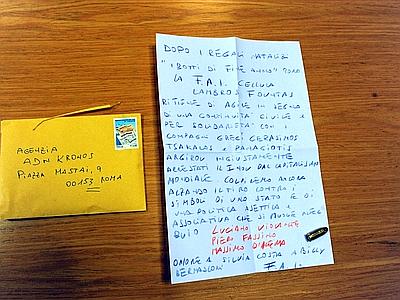 AGENZIA
ADN KRONOS
PIAZZA MASTAI, 9
00153 ROMA
DOPO I REGALI NATALIZI
"I BOTTI DI FINE ANNO"
LA F.A.I. CELLULA
LAMBROS FOUNTAS
RITIENE DI AGIRE IN SEGNO
DI UNA CONTINUITA' CIVILE E
PER SOLIDARIETA' CON I
COMPAGNI GRECI GERASIMOS
TSAKALOS E PANAGIOTIS
ARGIROU INGIUSTAMENTE
ARRESTATI IL 1 NOV DAL CAPITALISMO
MONDIALE. COLPIREMO ANCORA
ALZANDO IL TIRO CONTRO I
SIMBOLI DI UNO STATO E DI
UNA POLITICA ASETTICA E
ASSOCIATIVA CHE SI MUOVE
QUID LUCIANO VIOLANTE
PIERO FASSINO
MASSIMO D'ALEMA
ONORE A SILVIA COSTA BILLY
BERNASCONI F.A.I.